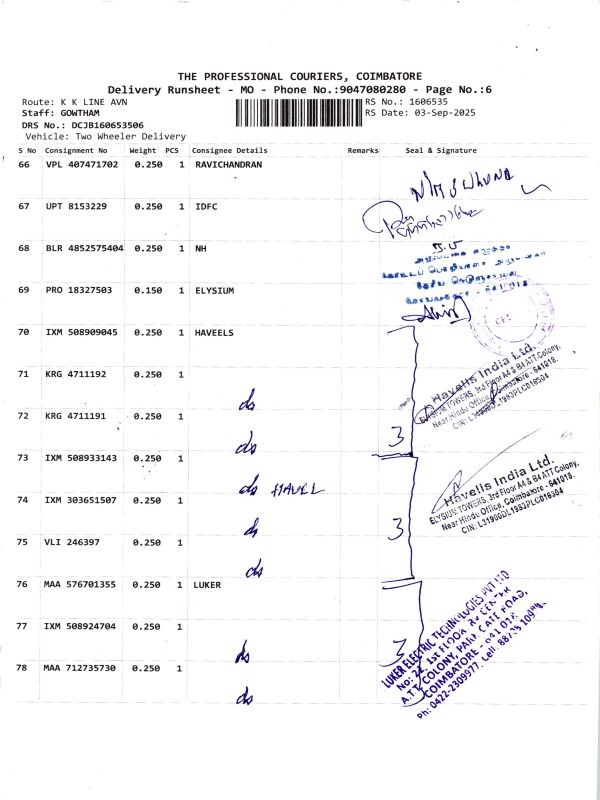 THE PROFESSIONAL COURIERS, COIMBATORE
Delivery Runsheet - MO - Phone No.:9047080280 - Page No.:6
Route: K K LINE AVN
RS No.: 1606535
Staff: GOWTHAM
RS Date: 03-Sep-2025
DRS No.: DCJB160653506
Vehicle: Two Wheeler Delivery
S No Consignment No Weight PCS Consignee Details Remarks Seal & Signature
66 VPL 407471702 0.250 1 RAVICHANDRAN
67 UPT 8153229 0.250 1 IDFC
68 BLR 4852575404 0.250 1 NH
69 PRO 18327503 0.150 1 ELYSIUM
641018
CFS
70 IXM 508909045 0.250 1 HAVEELS
Havells India Ltd.
ELYSIUM TOWERS, 3rd Floor A4 & B4 ATT Colony,
Near Hindu Office, Coimbatore - 641018.
CIN: L31900DL1983PLC016304
71 KRG 4711192 0.250 1
ds
72 KRG 4711191 0.250 1
ds
3
73 IXM 508933143 0.250 1
ds HAVEL
Havells India Ltd.
ELYSIUM TOWERS, 3rd Floor A4 & B4 ATT Colony,
Near Hindu Office, Coimbatore - 641018.
CIN: L31900DL1983PLC016304
74 IXM 303651507 0.250 1
ds
3
75 VLI 246397 0.250 1
ds
76 MAA 576701355 0.250 1 LUKER
77 IXM 508924704 0.250 1
ds
3
LUKER ELECTRIC TECHNOLOGIES PVT LTD
No: 22, 1st FLOOR,
A.T.T. COLONY, PARK GATE ROAD,
COIMBATORE - 641 018.
Ph: 0422-2309977, Cell:
78 MAA 712735730 0.250 1
ds